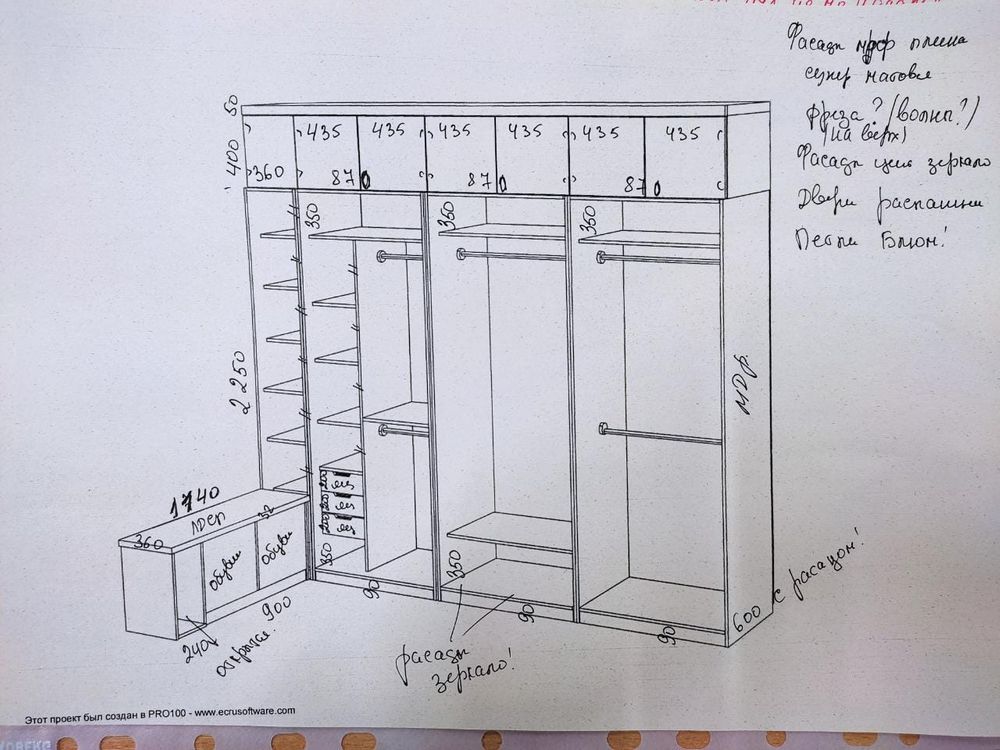 Фасады мдф пленка
супер матовые
фреза? (волна?)
(на верх)
Фасады цена зеркало
Двери распашни
Петли Блюм!
50
400
435 435 435 435 435 435
360 870 870 870
350 350 350
2250
мдф.
1740
ЛДСП
360
32
200 ящ
200 ящ
200 ящ
обувн обувн
350 350
900
90 90 90
600 с фасадом!
240
открытая.
фасады
зеркало!
Этот проект был создан в PRO100 - www.ecrusoftware.com